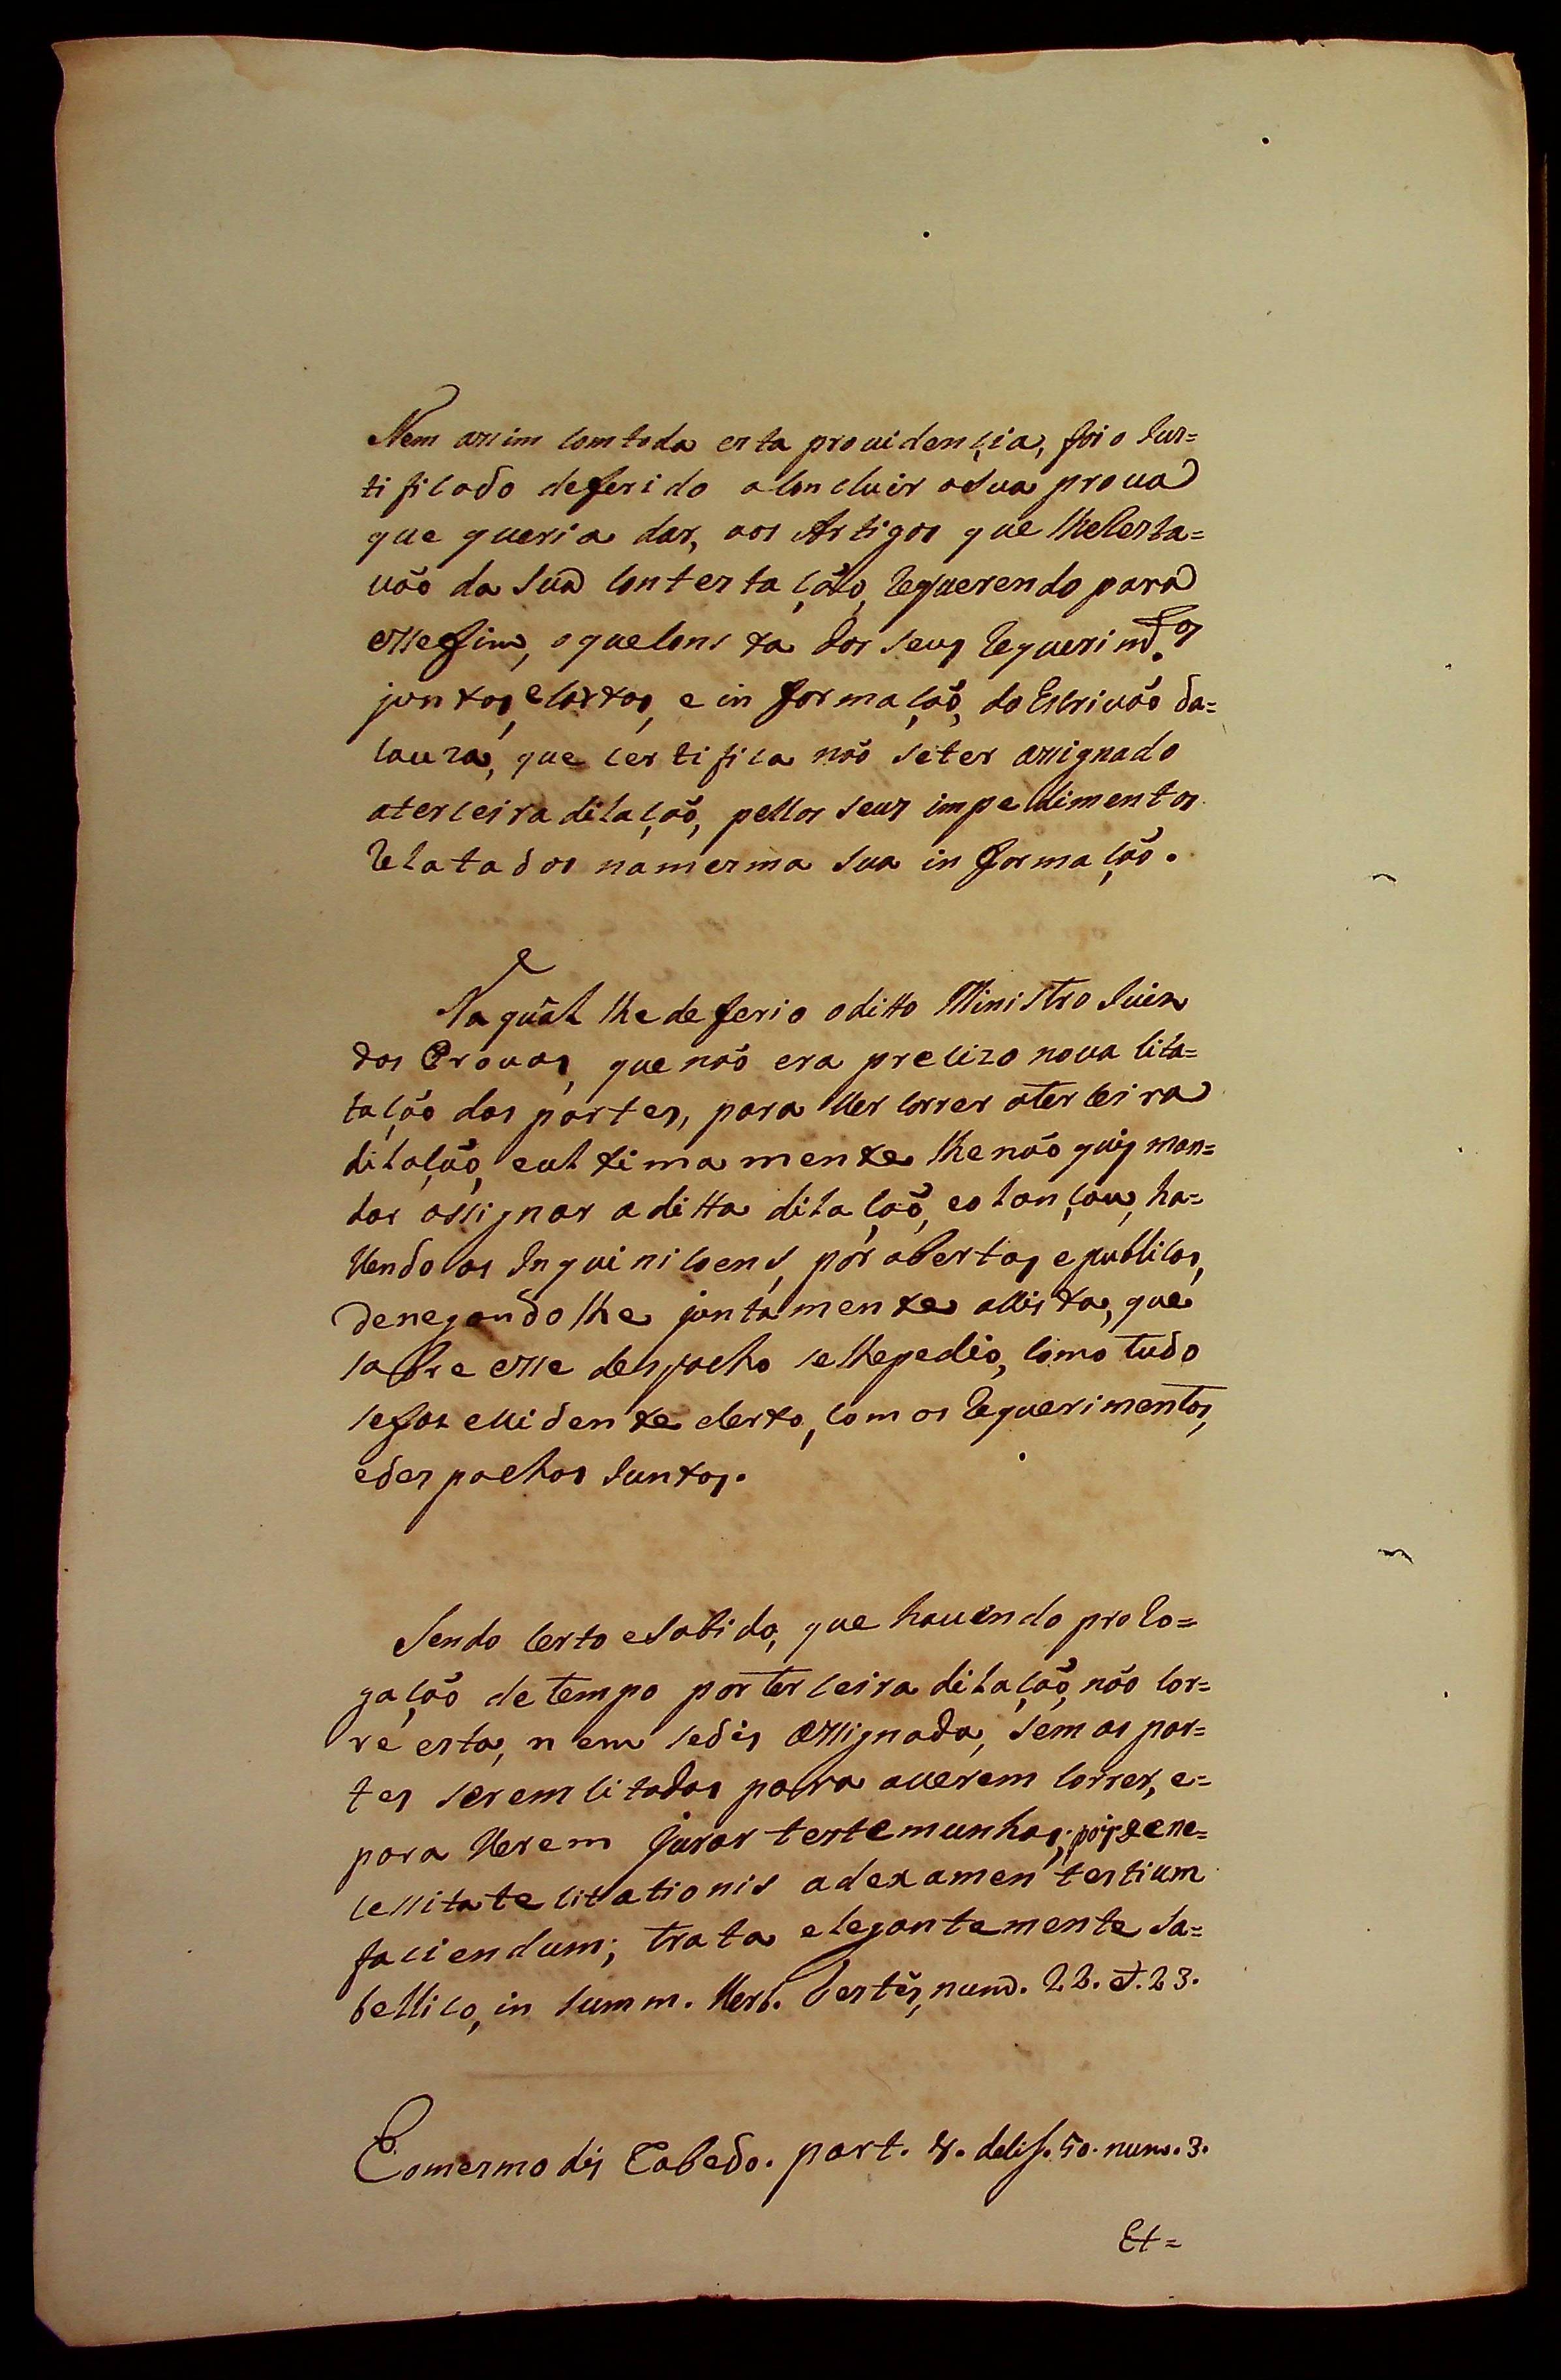 Nem assim comtoda esta prouidençia, foi o Jus=
tificado deferido aConcluir aSua proua
que queria dar, aos Artigos que lheResta=
uão da Sua Contestação, Requerendo para
essefim, oqueCons ta dos seus Requerim.tos
juntos, eCartas, e informação, do Escriuão da=
Cauza, que Certifica não seter assignado
aterceira dilação, pellos seus impedimentos
Relatados namesma Sua informação.
Naqual lhe deferio oditto Ministro Juiz
das Prouas, que não era precizo noua Cita=
tação das partes, para Uer correr aterceira
dilação, eultimamente lhe não quis man=
dar assignar aditta dilação, eolançou, ha=
Uendo as Inquiriçoens, por abertas epublicas,
denegandolhe juntamente aUista, que
sobre esse despacho selhepedio, como tudo
sefas eUidente desto, com os Requerimentos,
edespachos Juntos.
Sendo Certo eSabido, que hauendo proRo=
gação detempo porterceira dilação, não cor=
re esta, nem sedis assignada, Sem as par=
tes serem Citadas para aUerem Correr, e=
para Uerem jurar testemunhas; pois dene=
cessitate citationis adexamen testium
faciendum; trata elegantemente Sa=
bellico, in Summ. Uerb. Testes, num. 22. et. 23.
Eomesmo dis Cabedo. part. 1. decis. 50. num. 3.
Et=